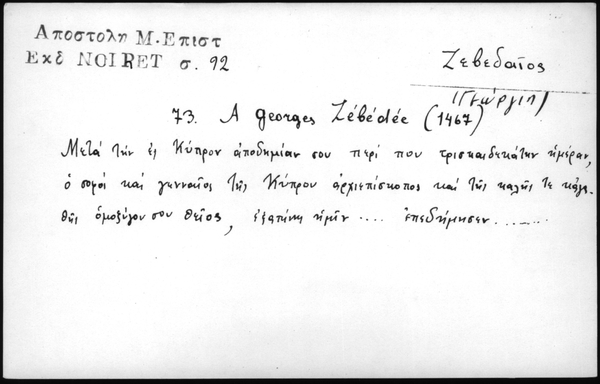 Αποστολη Μ. Επιστ
Εκδ NOIRET σ. 92
Ζεβεδαῖος
(Γεώργιος)
73. A Georges Zébédée (1467)
Μετά τήν ἐς Κύπρον ἀποδημίαν σου περί που τρισκαιδεκάτην ἡμέραν,
ὁ σοφός καί γενναῖος τῆς Κύπρου ἀρχιεπίσκοπος καί τῆς καλῆς τε κἀγα-
θῆς ὁμοζύγου σου θεῖος, ἐξαπίνης ἡμῖν .... ἐπεδήμησεν .......